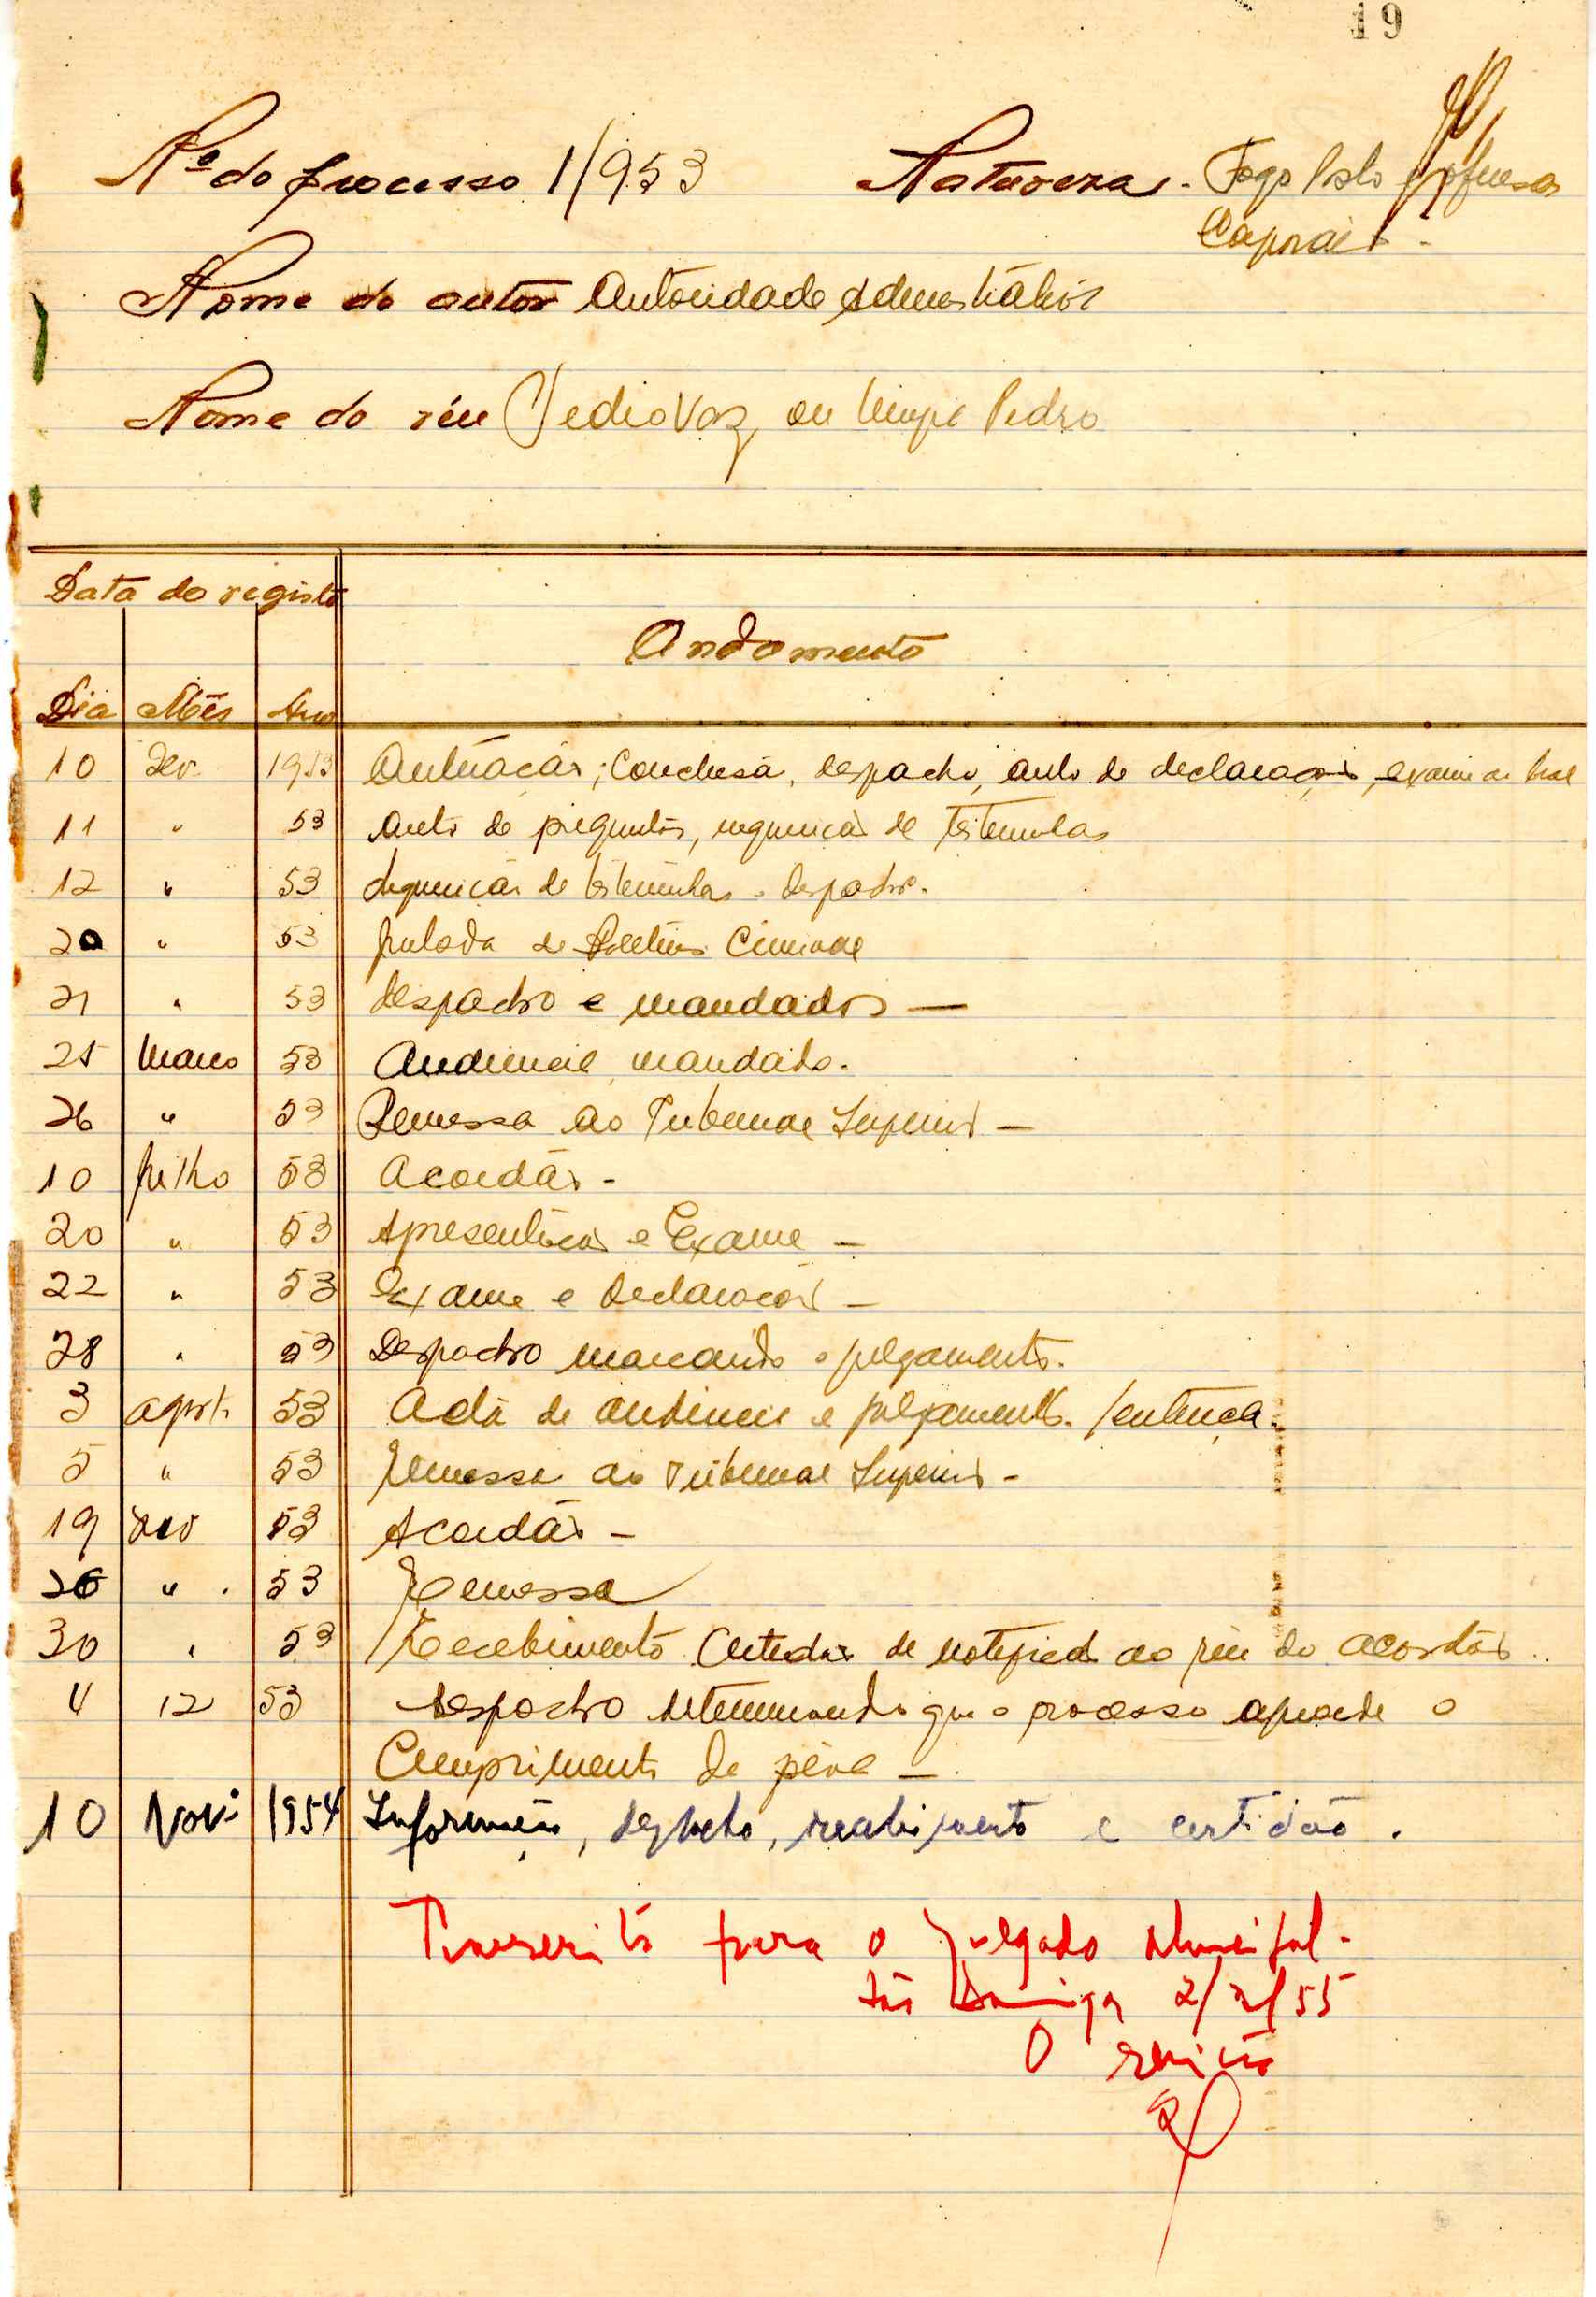 19
Nº do processo 1/953 Natureza - Fogo Posto e ofensas
Corporais -
Nome do autor Autoridade Administrativa
Nome do réu Pedro Vaz, ou Pedro
Data do registo
Andamento
Dia Mês Ano
10 Fev. 1953 Autuação; Conclusão, despacho, auto de declarações, exame
11 " 53 Auto de preguntas, inquirição de testemunhas
12 " 53 Inquirição de testemunhas e despacho.
20 " 53 Juntada de Boletim Criminal
21 " 53 Despacho e mandados —
25 Março 53 Audiencia, mandado.
26 " 53 Remessa ao Tribunal Superior —
10 Julho 53 Acordão -
20 " 53 Apresentação e Exame —
22 " 53 Exame e Declaração —
28 " 53 Despacho marcando o julgamento.
3 Agosto 53 Acta de audiencia e julgamento. Sentença.
5 " 53 Remessa ao Tribunal Superior -
19 Nov 53 Acordão —
26 " . 53 Remessa
30 " 53 Recebimento Certidão de notificação ao réu do acordão ..
4 12 53 Despacho determinando que o processo aguarde o
Cumprimento da pena —.
10 Nov. 1954 Informação, despacho, recebimento e certidão.
Transcrito para o Julgado Municipal.
São Domingos 2/2/55
O escrivão